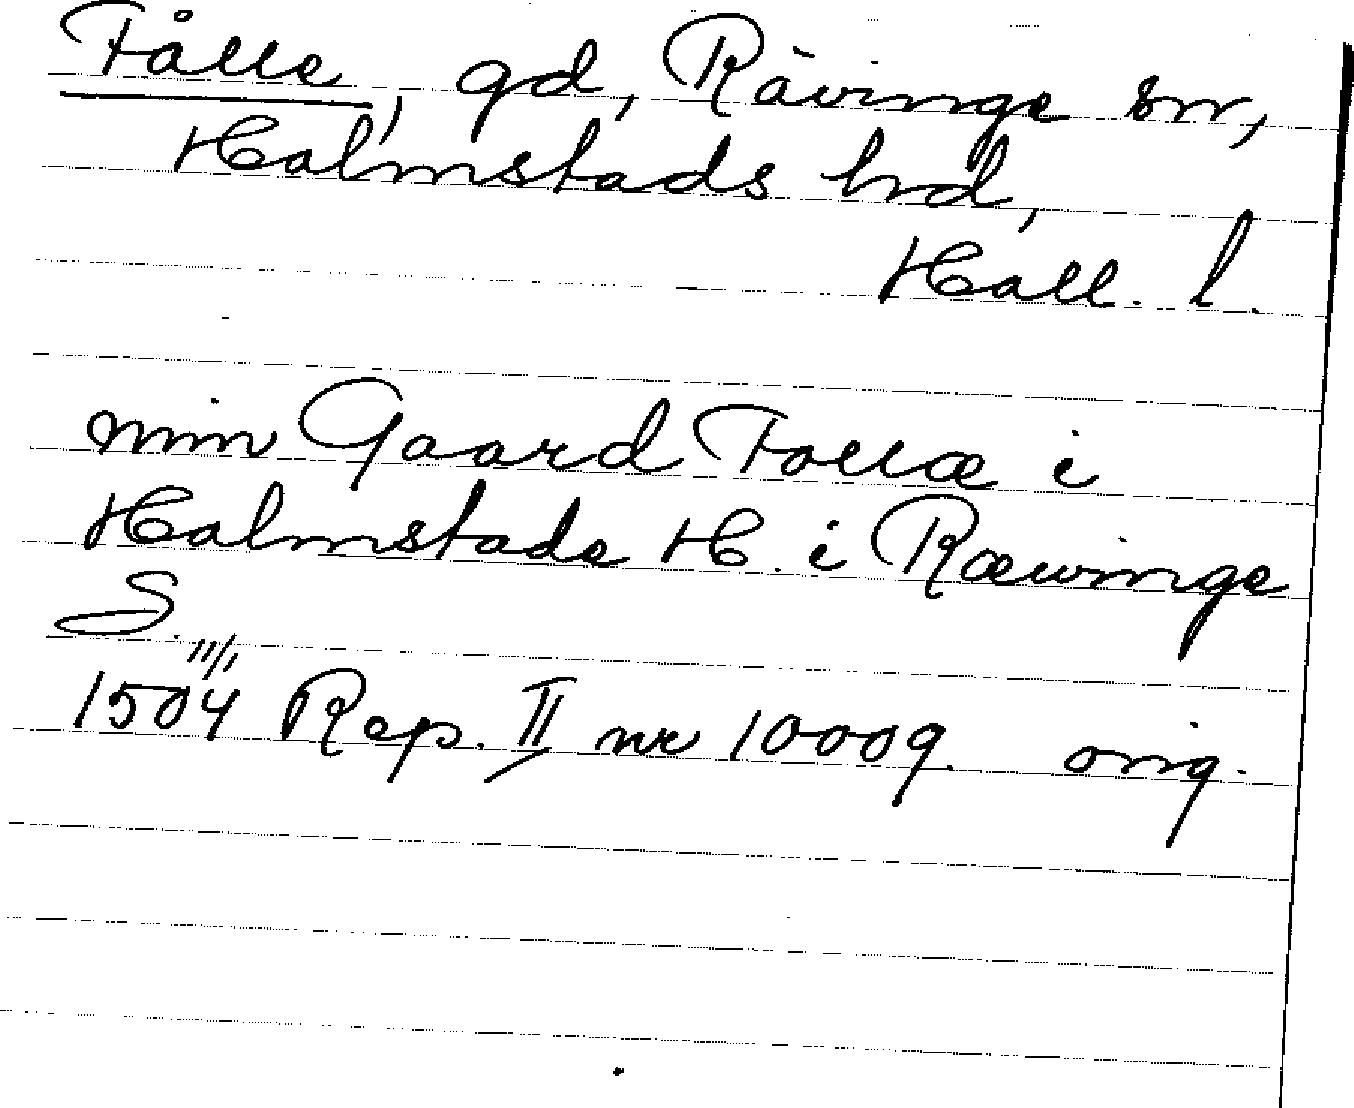 Fålle, gd, Rävinge sn,
Halmstads hrd,
Hall. l.
min Gaard Follæ i
Halmstade H. i Ræwinge
S.
11/1
1504 Rep. II nr 10009. orig.